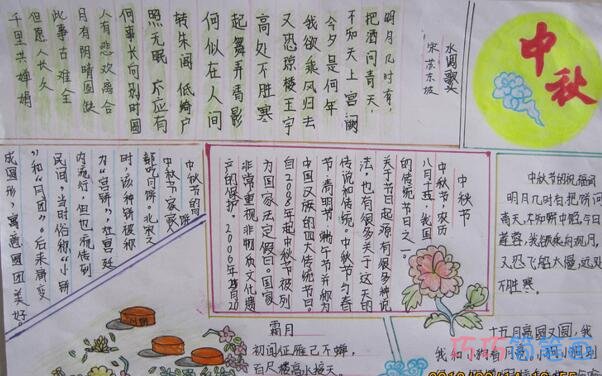 中秋
水调歌头
宋 苏东坡
明月几时有，
把酒问青天，
不知天上宫阙
今夕是何年
我欲乘风归去
又恐琼楼玉宇
高处不胜寒
起舞弄青影
何似在人间
转朱阁 低绮户
照无眠 不应有
何事长向别时圆
人有悲欢离合
月有阴晴圆缺
此事古难全
但愿人长久
千里共婵娟
中秋节
中秋节，农历
八月十五，我国
的传统节日之一。
关于节日起源有很多种说
法，也有很多关于这天的
传说和传统。中秋节与春
节，清明节、端午节并称为
中国汉族的四大传统节日。
自2008年起中秋节被列
为国家法定假日。国家
非常重视非物质文化遗
产的保护，2006年5月20
中秋节的
中秋节，家家
都吃月饼。北宋之
时，该种饼被称
为“宫饼”，在宫廷
内流行，但也流传到
民间，当时俗称“小饼
”和“月团”。后来演变
成圆形，寓意团圆美好。
中秋节的祝福
明月几时有把酒问
青天，不知
我欲乘
又恐
不胜寒
霜月
初闻征雁已不蝉，
百尺楼高水接天。
十五月亮圆又圆，我
巧巧简笔画